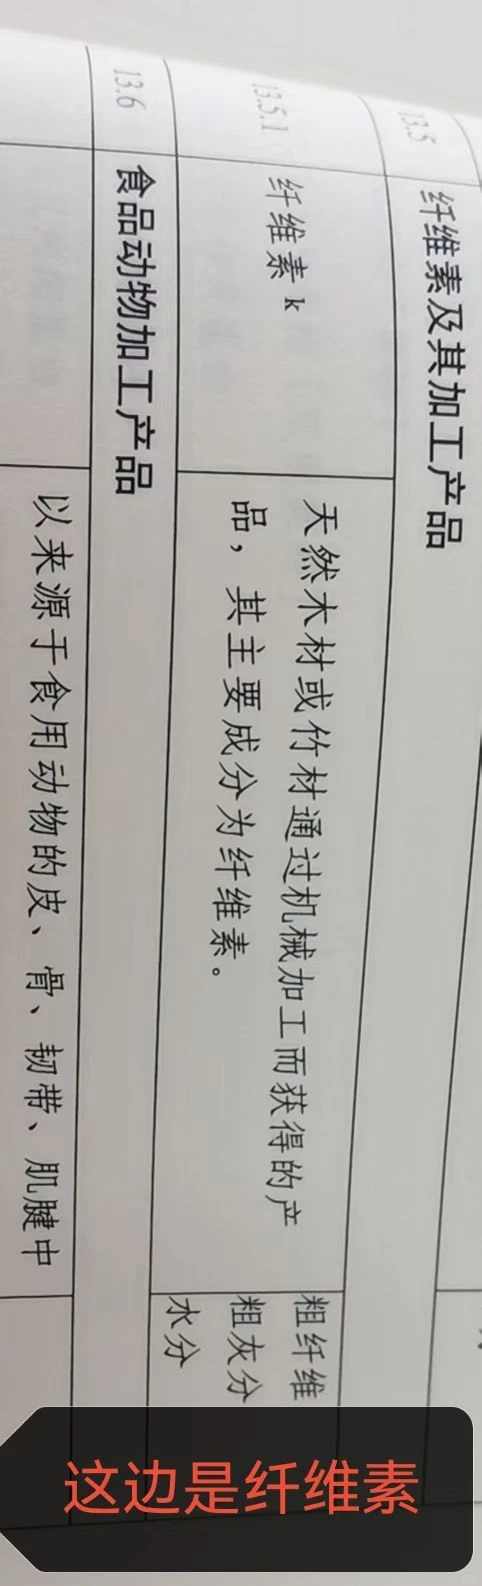 13.5 纤维素及其加工产品
13.5.1 纤维素 k
天然木材或竹材通过机械加工而获得的产
品，其主要成分为纤维素。
粗纤维
粗灰分
水分
13.6 食品动物加工产品
以来源于食用动物的皮、骨、韧带、肌腱中
这边是纤维素